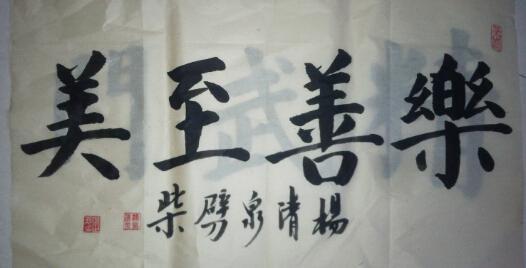 樂善至美
楊清泉劈柴